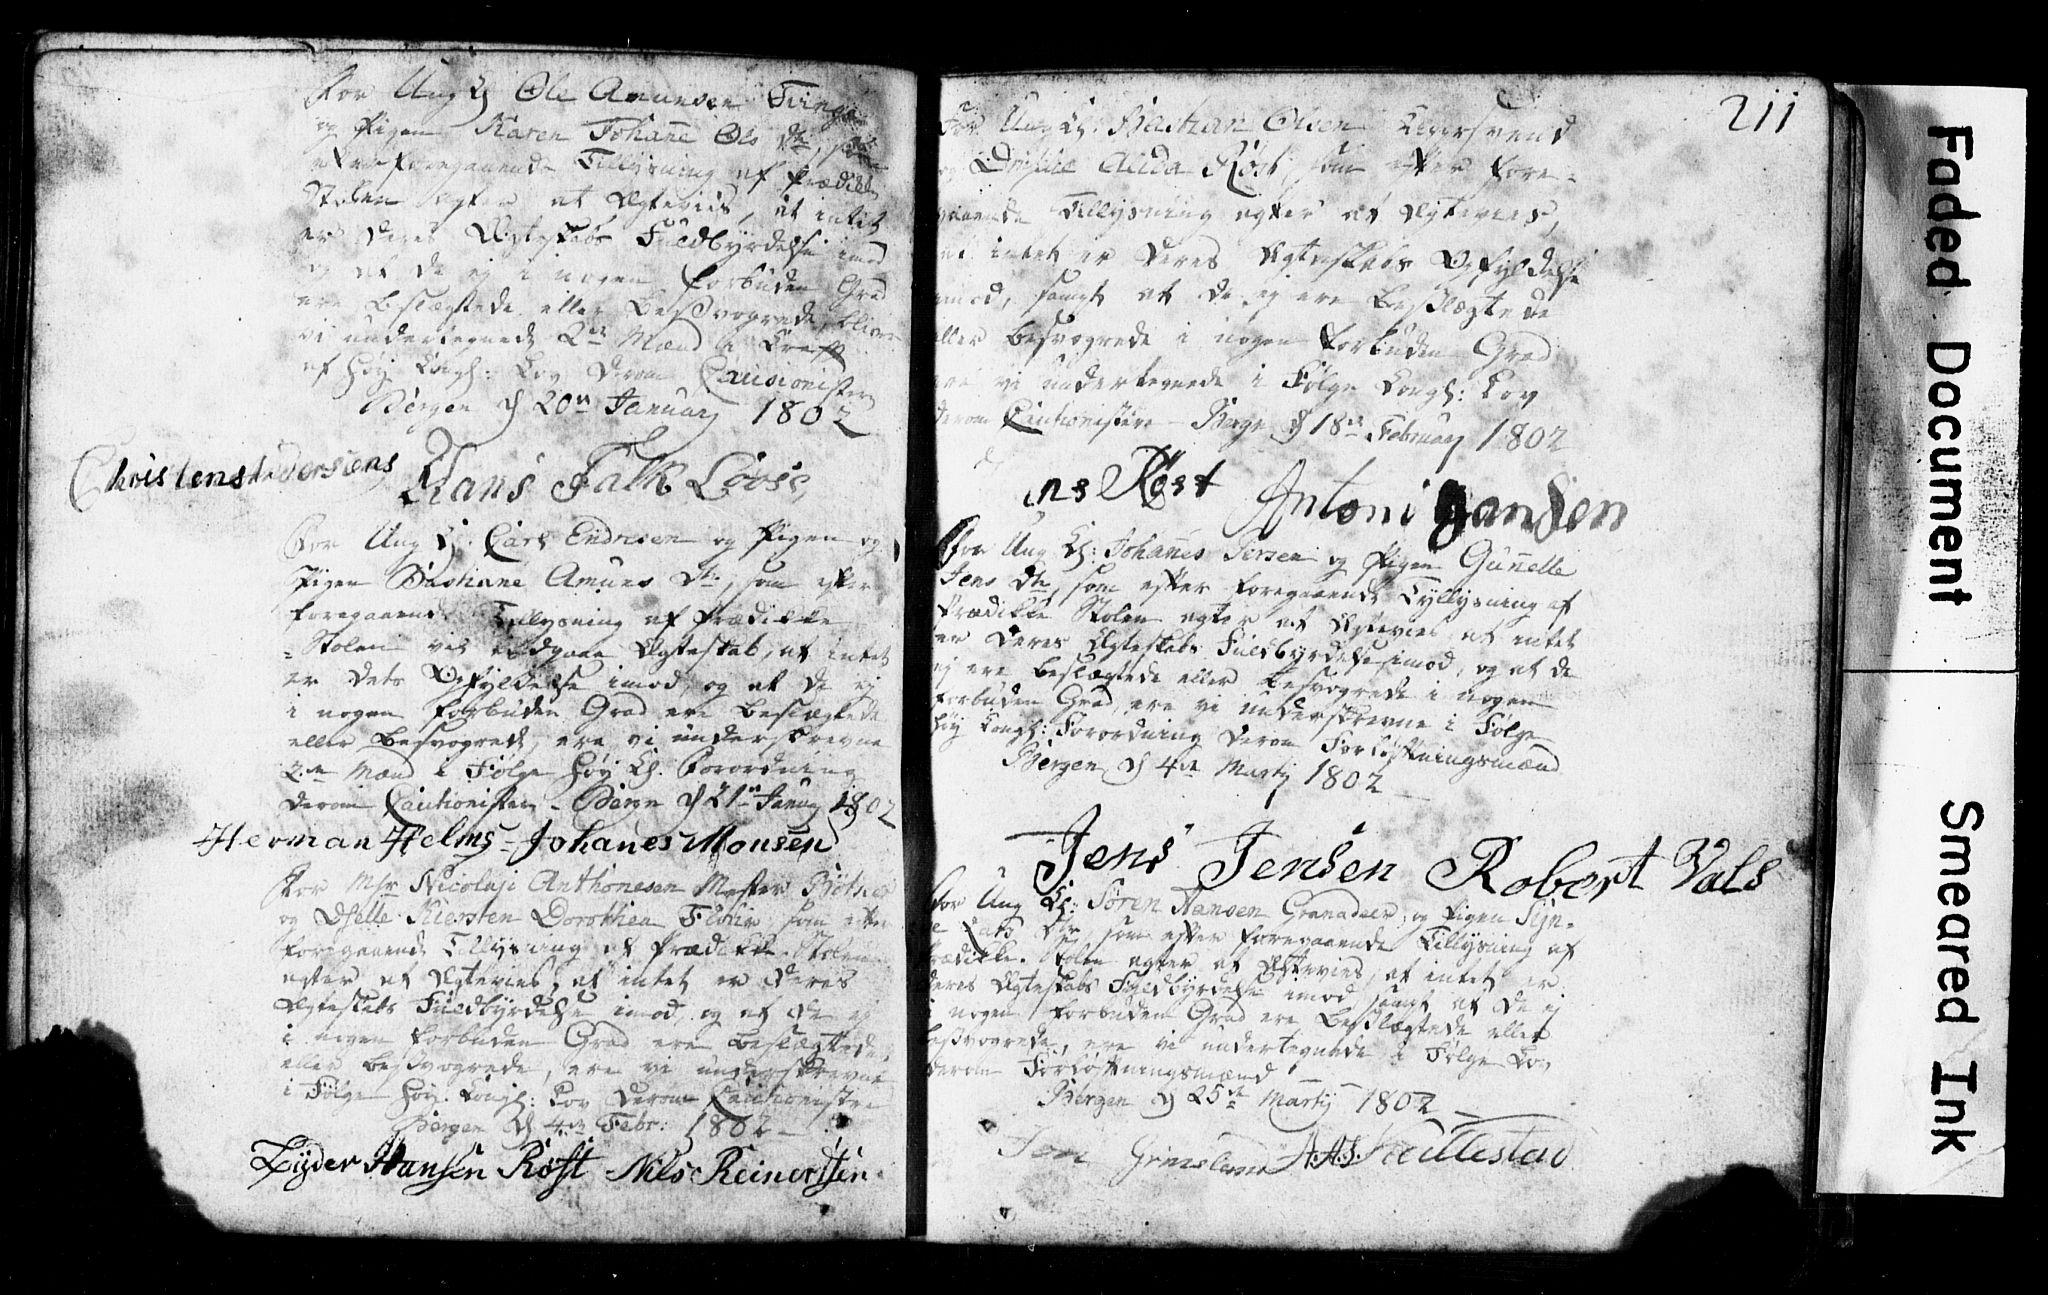 For Ung K: Ole Amunsen
og Pigen Karen Johane Ols Dtr,
foregaaende Tillysning af Prædike
Stolen agter at Ægtevies, at intet
er deres Ægteskabs Fuldbyrdelse imod
og at de ej i nogen forbuden Grad
ere beslægtede eller besvogrede, bliver
vi undertegnede 2de Mænd i Kraft
af høy Kongl: Lov derom Cautionister
Bergen d 20de January 1802
Christens Andersens Hans Falk Looss
For Ung K: Carl Endresen og Pigen og
Pigen Bastiane Amuns Dtr, som efter
foregaaende Tillysning af Prædikke
Stolen vil indgaae Ægteskab, at intet
er dets Opfyldelse imod, og at de ej
i nogen forbuden Grad ere beslægtede
eller besvogrede, ere vi underskrevne
2de Mænd i Følge høy Kl. Forordning
derom Cautionister - Bergen d 21de Januay 1802
Herman Helms - Johanes Monsen
For Msr Nicolaji Anthonesen Mester
og Dselle Kiersten Dorothea som efter
foregaaende Tillysning af Prædikke Stolen
agter at Ægtevies, at intet er deres
Ægteskabs Fuldbyrdelse imod, og at de ej
i nogen forbuden Grad ere beslægtede,
eller besvogrede, ere vi underskrevne
i Følge høy Kongl: Lov derom Cautionister
Bergen d 4de Febr: 1802
Lyder Hansen Röst - Nils Reinertsen
211
For Ung K: Bastian Olsen
Alida Röst, som efter fore-
gaaende Tillysning agter at Ægtevies,
at intet er deres Ægteskabs Opfyldelse
imod, samt at de ej ere beslægtede
eller besvogrede i nogen forbuden Grad
ere vi undertegnede i Følge Kongl: Lov
derom Cautionister - Bergen d 18de February 1802
ns Röst Antoni Jansen
For Ung K: Johanes Iversen og Pigen Gunelle
Jens Dtr, som efter foregaaende Tyllysning af
Prædikke Stolen agter at Ægtevies at intet
er deres Ægteskabs Fuldbyrdelse imod, og at de
ej ere beslægtede eller besvogrede i nogen
forbuden Grad, ere vi underskrevne i Følge
høy Kongl: Forordning derom Forlöftningsmænd
Bergen d 4de Martij 1802
Jens Jensen Robert Vals
For Ung K: Sören Hansen Granadeer, og Pigen Syn-
e Lars Dtr, som efter foregaaende Tillysning af
Prædikke Stolen agter at Ægtevies, at intet er
deres Ægteskabs Fuldbyrdelse imod, samt at de ej
i nogen forbuden Grad ere beslægtede eller
besvogrede, ere vi undertegnede i Følge Lov
derom Forlöftningsmænd
Bergen d 25de Martij 1802
Faded Document
Smeared Ink